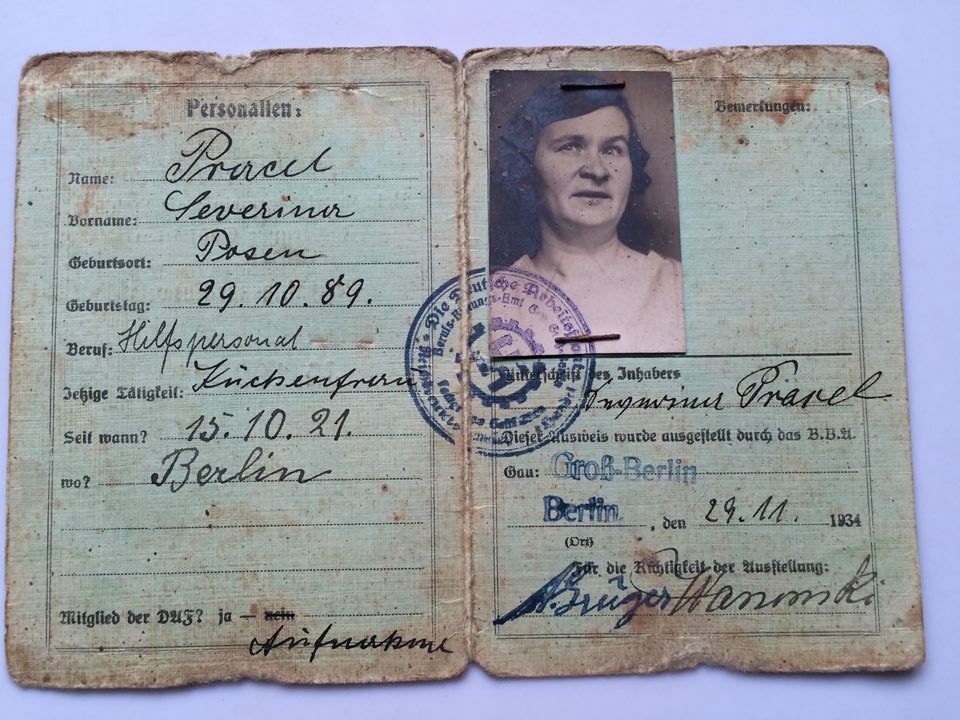 Personalien:
Name: Pracel
Vorname: Severina
Geburtsort: Posen
Geburtstag: 29.10.89.
Beruf: Hilfspersonal
Jetzige Tätigkeit: Küchenfrau
Seit wann? 15.10.21.
wo? Berlin
Mitglied der DAF? ja — nein
Aufnahme
Bemerkungen:
Die Deutsche Arbeitsfront
Unterschrift des Inhabers
Severina Pracel
Dieser Ausweis wurde ausgestellt durch das B.B.A.
Gau: Groß-Berlin
Berlin, den 29.11. 1934
(Ort)
Für die Richtigkeit der Ausstellung:
Krüger